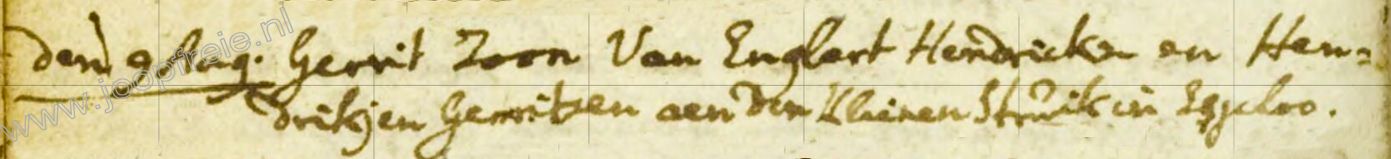 den 9 Aug. Gerrit Zoon Van Englert Hendricken en Hen=
drikjen Gerritzen aen den Kleinen Struik in
www.joopfreie.nl